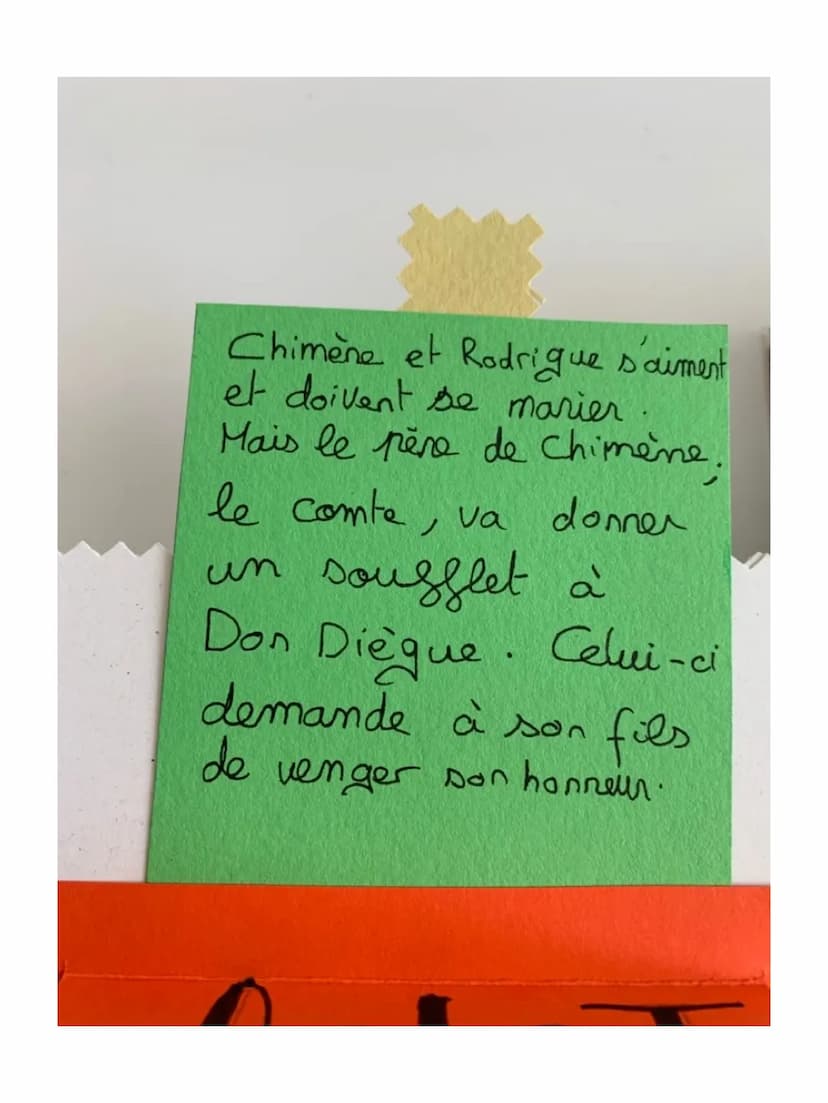 Chimène et Rodrigue s'aiment
et doivent se marier.
Mais le père de Chimène,
le comte, va donner
un soufflet à
Don Diègue. Celui-ci
demande à son fils
de venger son honneur.